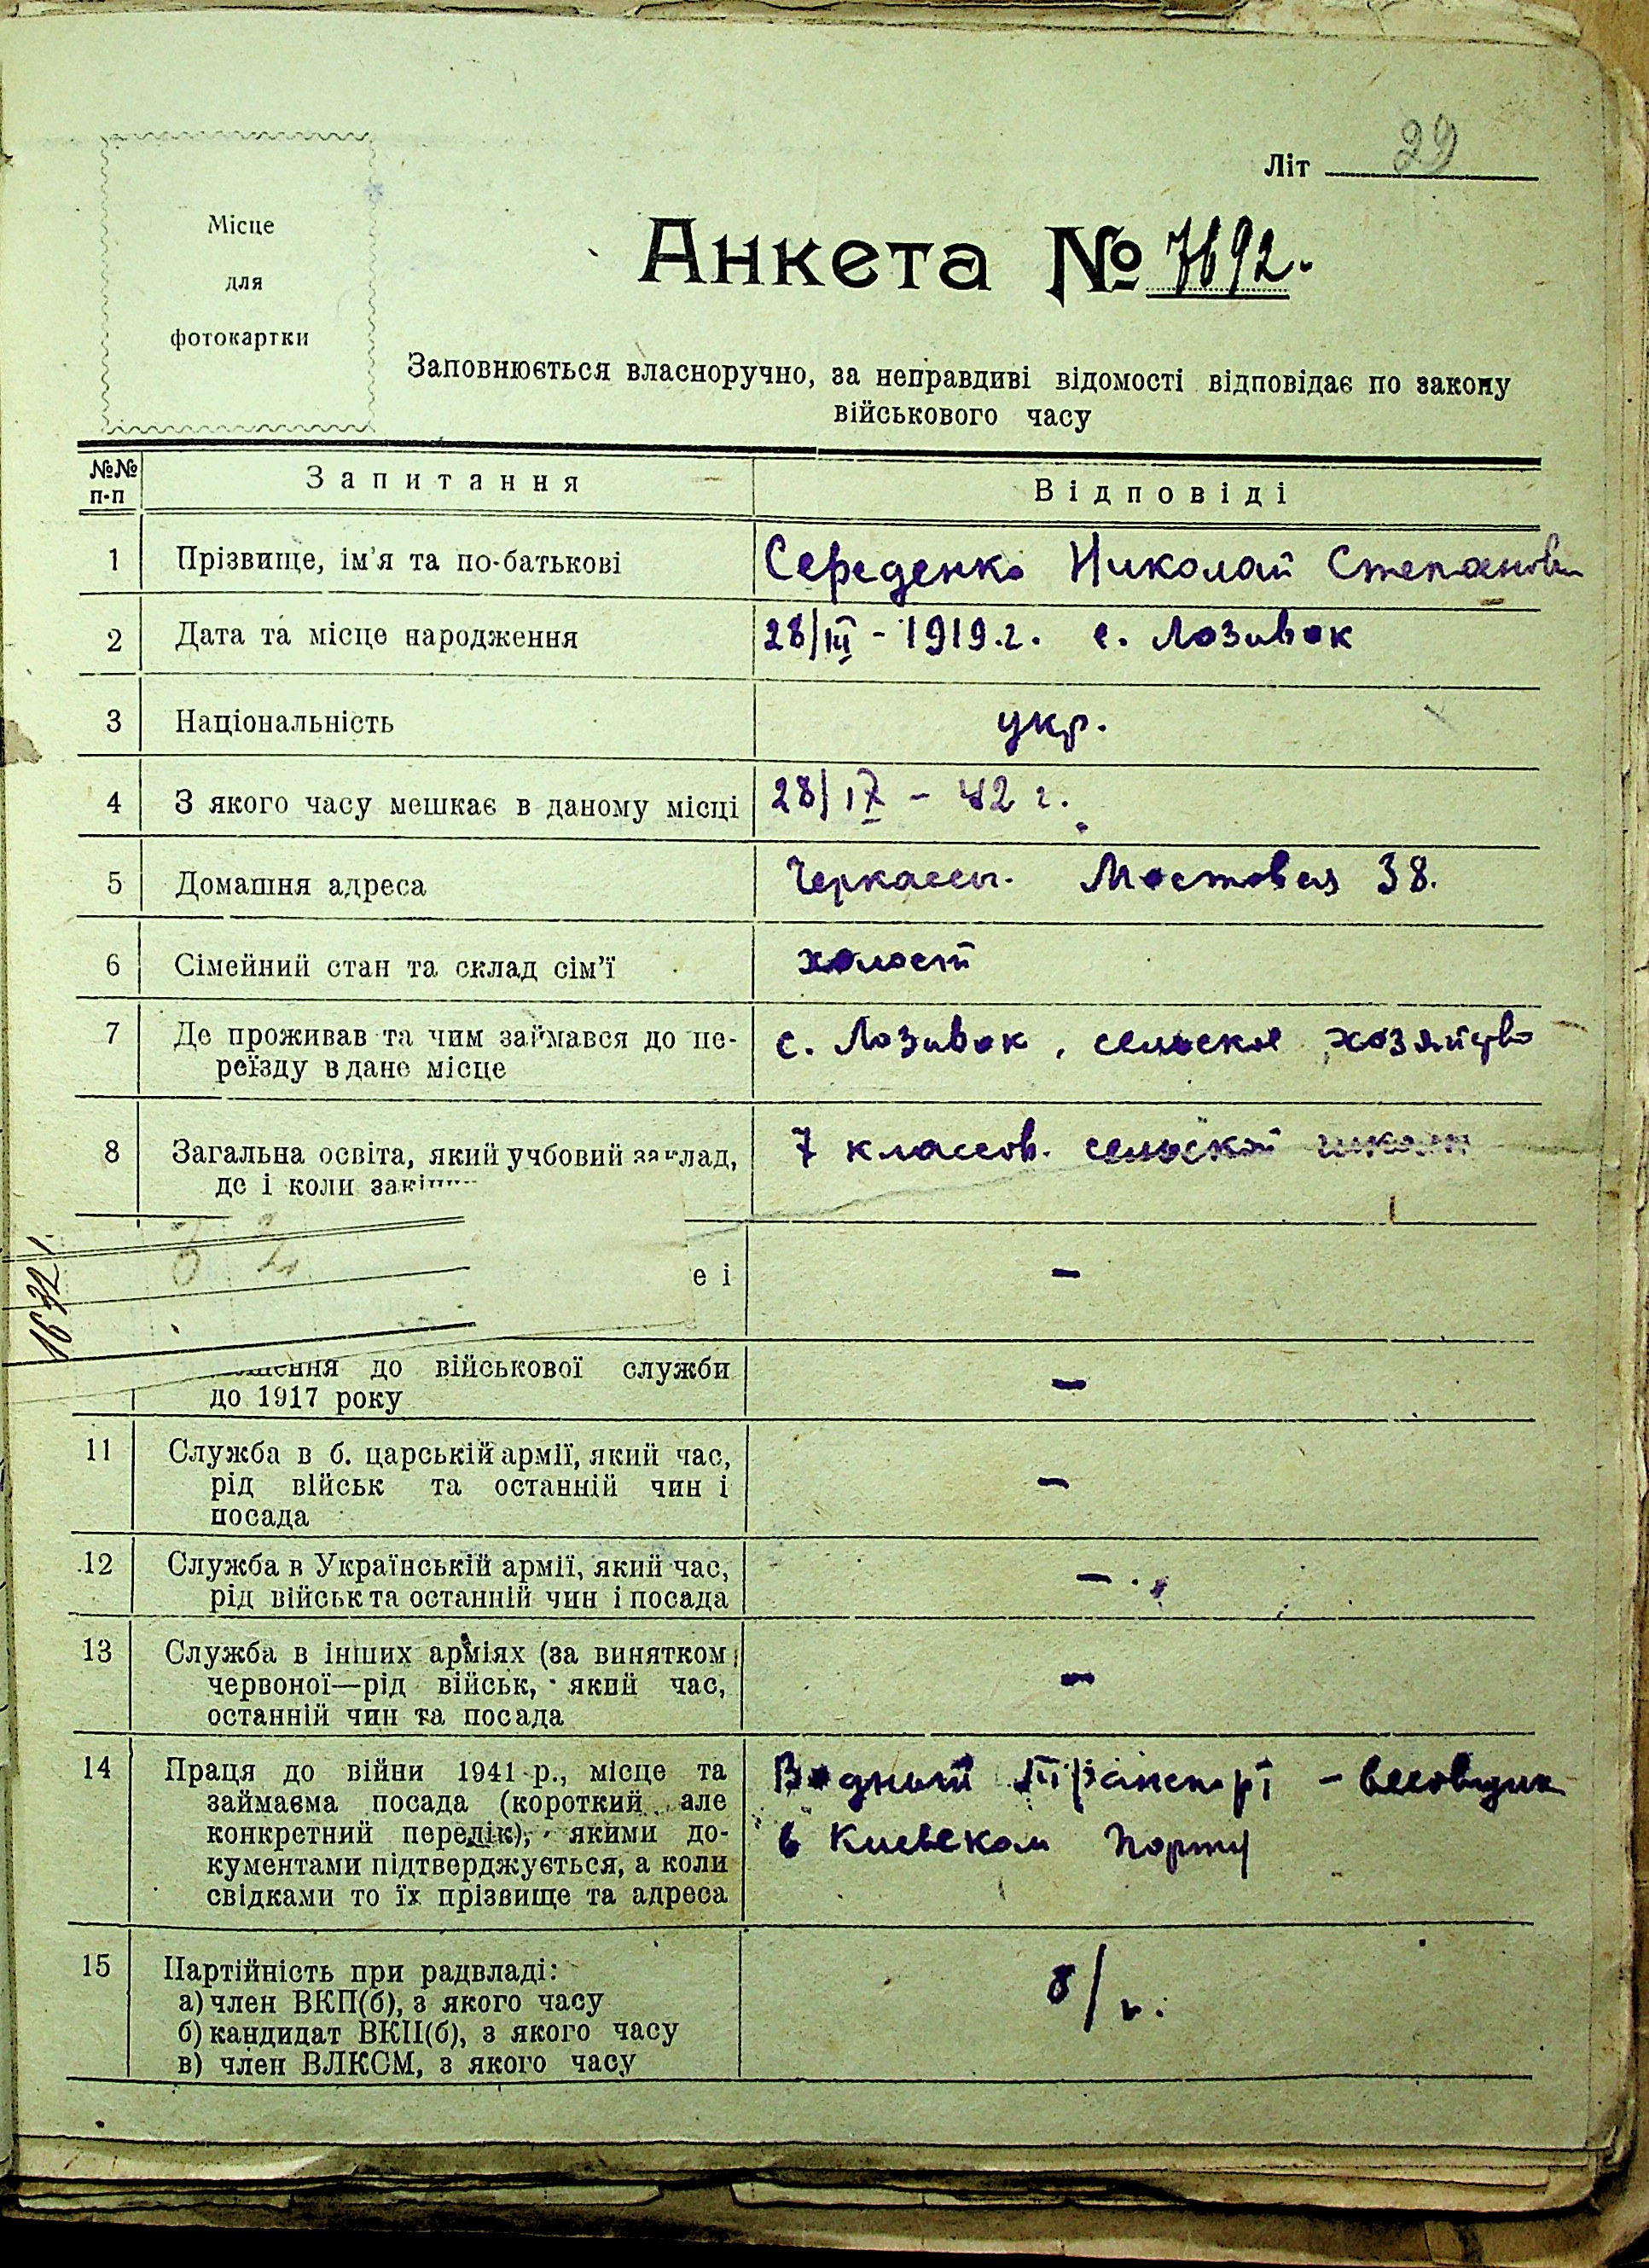 Літ 29
Місце
для
фотокартки
Анкета № 7692.
Заповнюється власноручно, за неправдиві відомості відповідає по закону
військового часу
№№ п-п Запитання Відповіді
1 Прізвище, ім'я та по-батькові Середенко Николай Степанови
2 Дата та місце народження 28/III - 1919.г. с. Лозивок
3 Національність укр.
4 З якого часу мешкає в даному місці 28/IX - 42 г.
5 Домашня адреса Черкассы. Мостовая 38.
6 Сімейний стан та склад сім'ї холост
7 Де проживав та чим займався до пе- с. Лозивок, сельское хозяйство
реїзду в дане місце
8 Загальна освіта, який учбовий заклад, 7 классов. сельской школы
де і коли закін
1672
е і –
шення до військової служби –
до 1917 року
11 Служба в б. царській армії, який час, –
рід військ та останній чин і
посада
12 Служба в Українській армії, який час, –
рід військ та останній чин і посада
13 Служба в інших арміях (за винятком
червоної—рід військ, який час, –
останній чин та посада
14 Праця до війни 1941 р., місце та Водный транспорт – весовщик
займаєма посада (короткий але
конкретний переділ), якими до- в Киевском порту
кументами підтверджується, а коли
свідками то їх прізвище та адреса
15 Партійність при радвладі: б/п.
а) член ВКП(б), з якого часу
б) кандидат ВКП(б), з якого часу
в) член ВЛКСМ, з якого часу